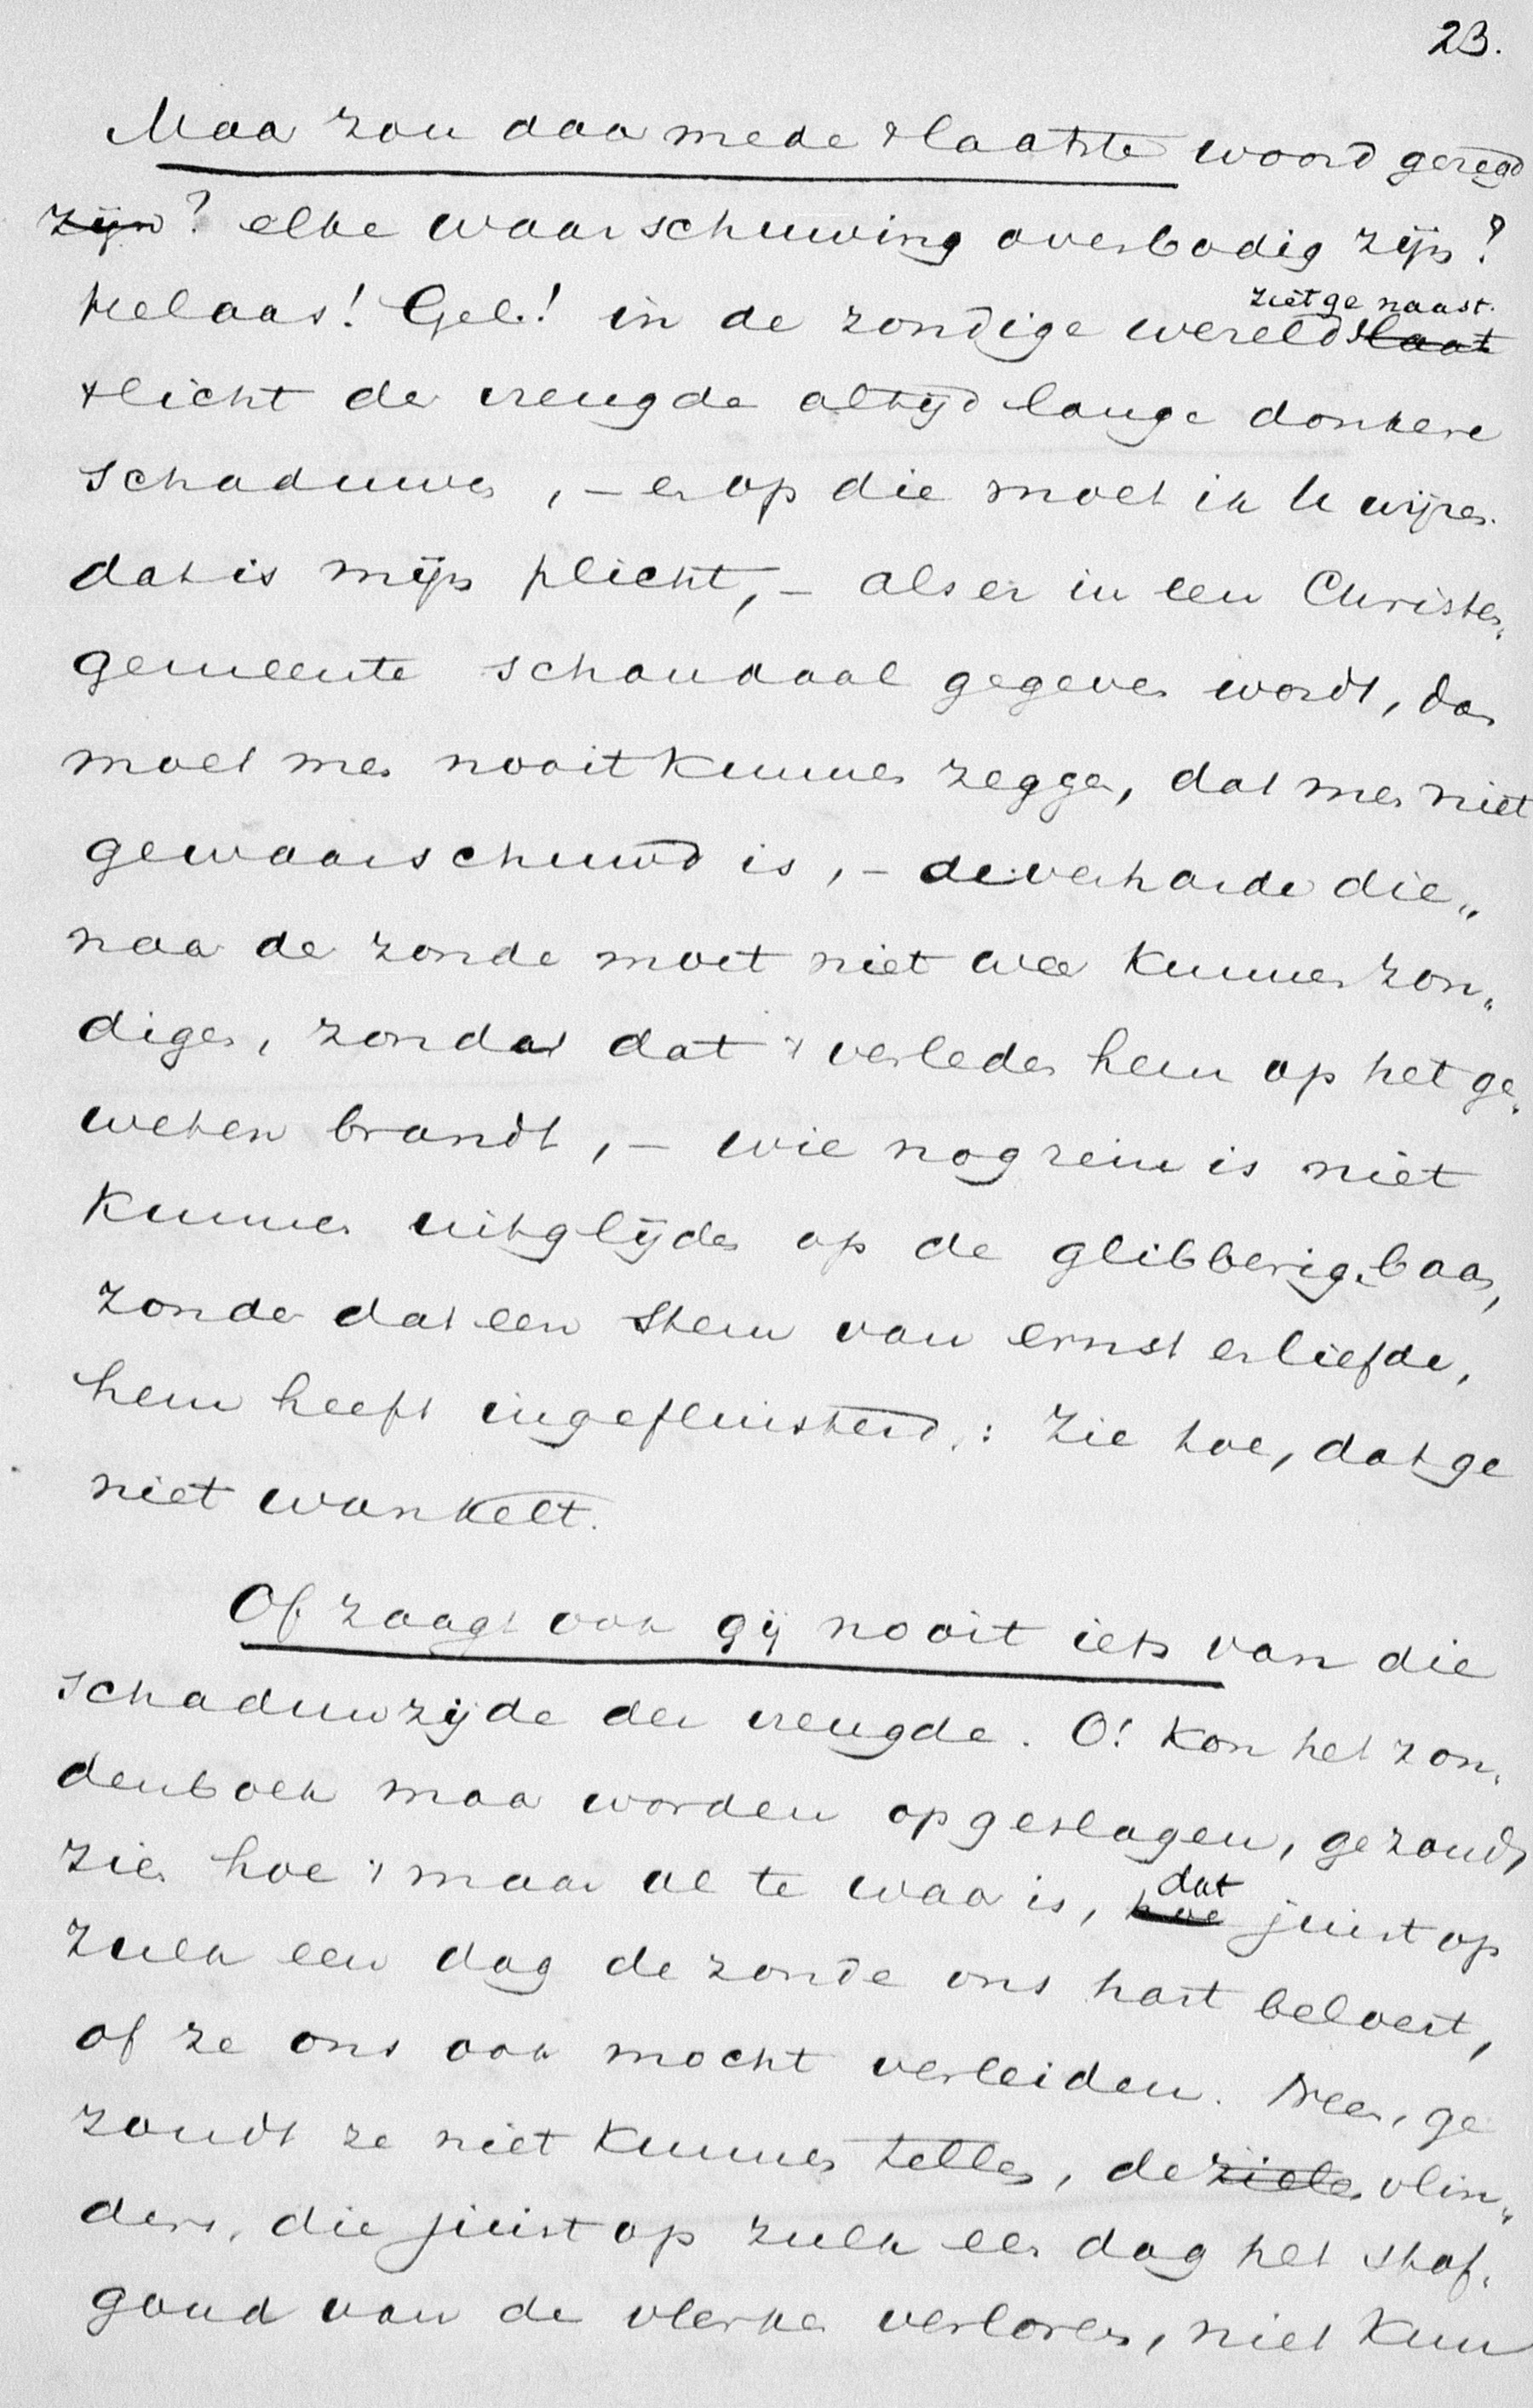 23.
Maar zou daarmede 't laatste woord gezegd
zijn? elke waarschuwing overbodig zijn?
Helaas! Gel.! in de zondige wereld slaat ziet ge naast
't licht der vreugde altijd lange donkere
schaduwen, – en op die moet ik U wijzen.
dat is mijn plicht, – als er in een Christen„
gemeente schandaal gegeven wordt, dan
moet men nooit kunnen zeggen, dat men niet
gewaarschuwd is, – de verharde die„
naar der zonde moet niet weer kunnen zon„
digen, zonder dat 't verleden hem op het ge„
weten brandt, – wie nog rein is niet
kunnen uitglijden op de glibberige baan,
zonder dat een stem van ernst en liefde,
hem heeft ingefluisterd: Zie toe, dat ge
niet wankelt.
Of zaagt ook gij nooit iets van die
schaduwzijde der vreugde. O! kon het zon„
denboek maar worden opgeslagen, ge zoudt
zien hoe 't maar al te waar is, hoe dat juist op
zulk een dag de zonde ons hart beloert,
of ze ons ook mocht verleiden. Neen, ge
zoudt ze niet kunnen tellen, de zielen vlin„
ders, die juist op zulk een dag het stof„
goud van de vlerken verloren, niet kun